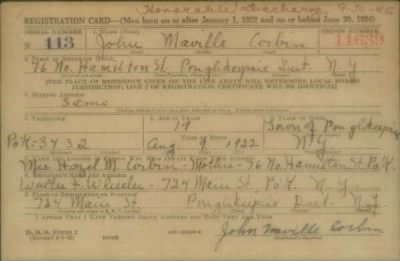 Honorable Discharge 9-30-45
REGISTRATION CARD—(Men born on or after January 1, 1922 and on or before June 30, 1924)
SERIAL NUMBER 1. NAME (Print) ORDER NUMBER
N 113 John Maville Corbin 11639
76 No. Hamilton St. Poughkeepsie Dut. N.Y.
[THE PLACE OF RESIDENCE GIVEN ON THE LINE ABOVE WILL DETERMINE LOCAL BOARD
JURISDICTION; LINE 2 OF REGISTRATION CERTIFICATE WILL BE IDENTICAL]
3. MAILING ADDRESS
Same
4. TELEPHONE 5. AGE IN YEARS 6. PLACE OF BIRTH
19 Town of Poughkeepsie
DATE OF BIRTH
Pok-3432 Aug. 9, 1922 N.Y.
Mrs. Hazel M. Corbin-Mother-76 No. Hamilton St. Pok.
Walter F. Wheeler-724 Main St. Pok. N.Y.
724 Main St. Poughkeepsie Dut. N.Y.
I AFFIRM THAT I HAVE VERIFIED ABOVE ANSWERS AND THAT THEY ARE TRUE.
D. S. S. Form 1
John Maville Corbin